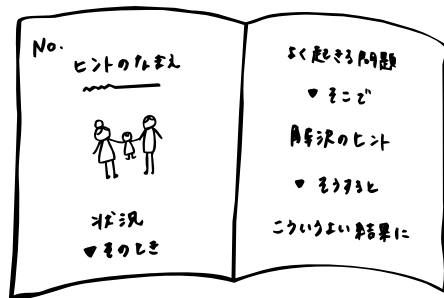 No.
ヒントのなまえ
状況
▼そのとき
よく起きる問題
▼そこで
解決のヒント
▼そうすると
こういうよい結果に